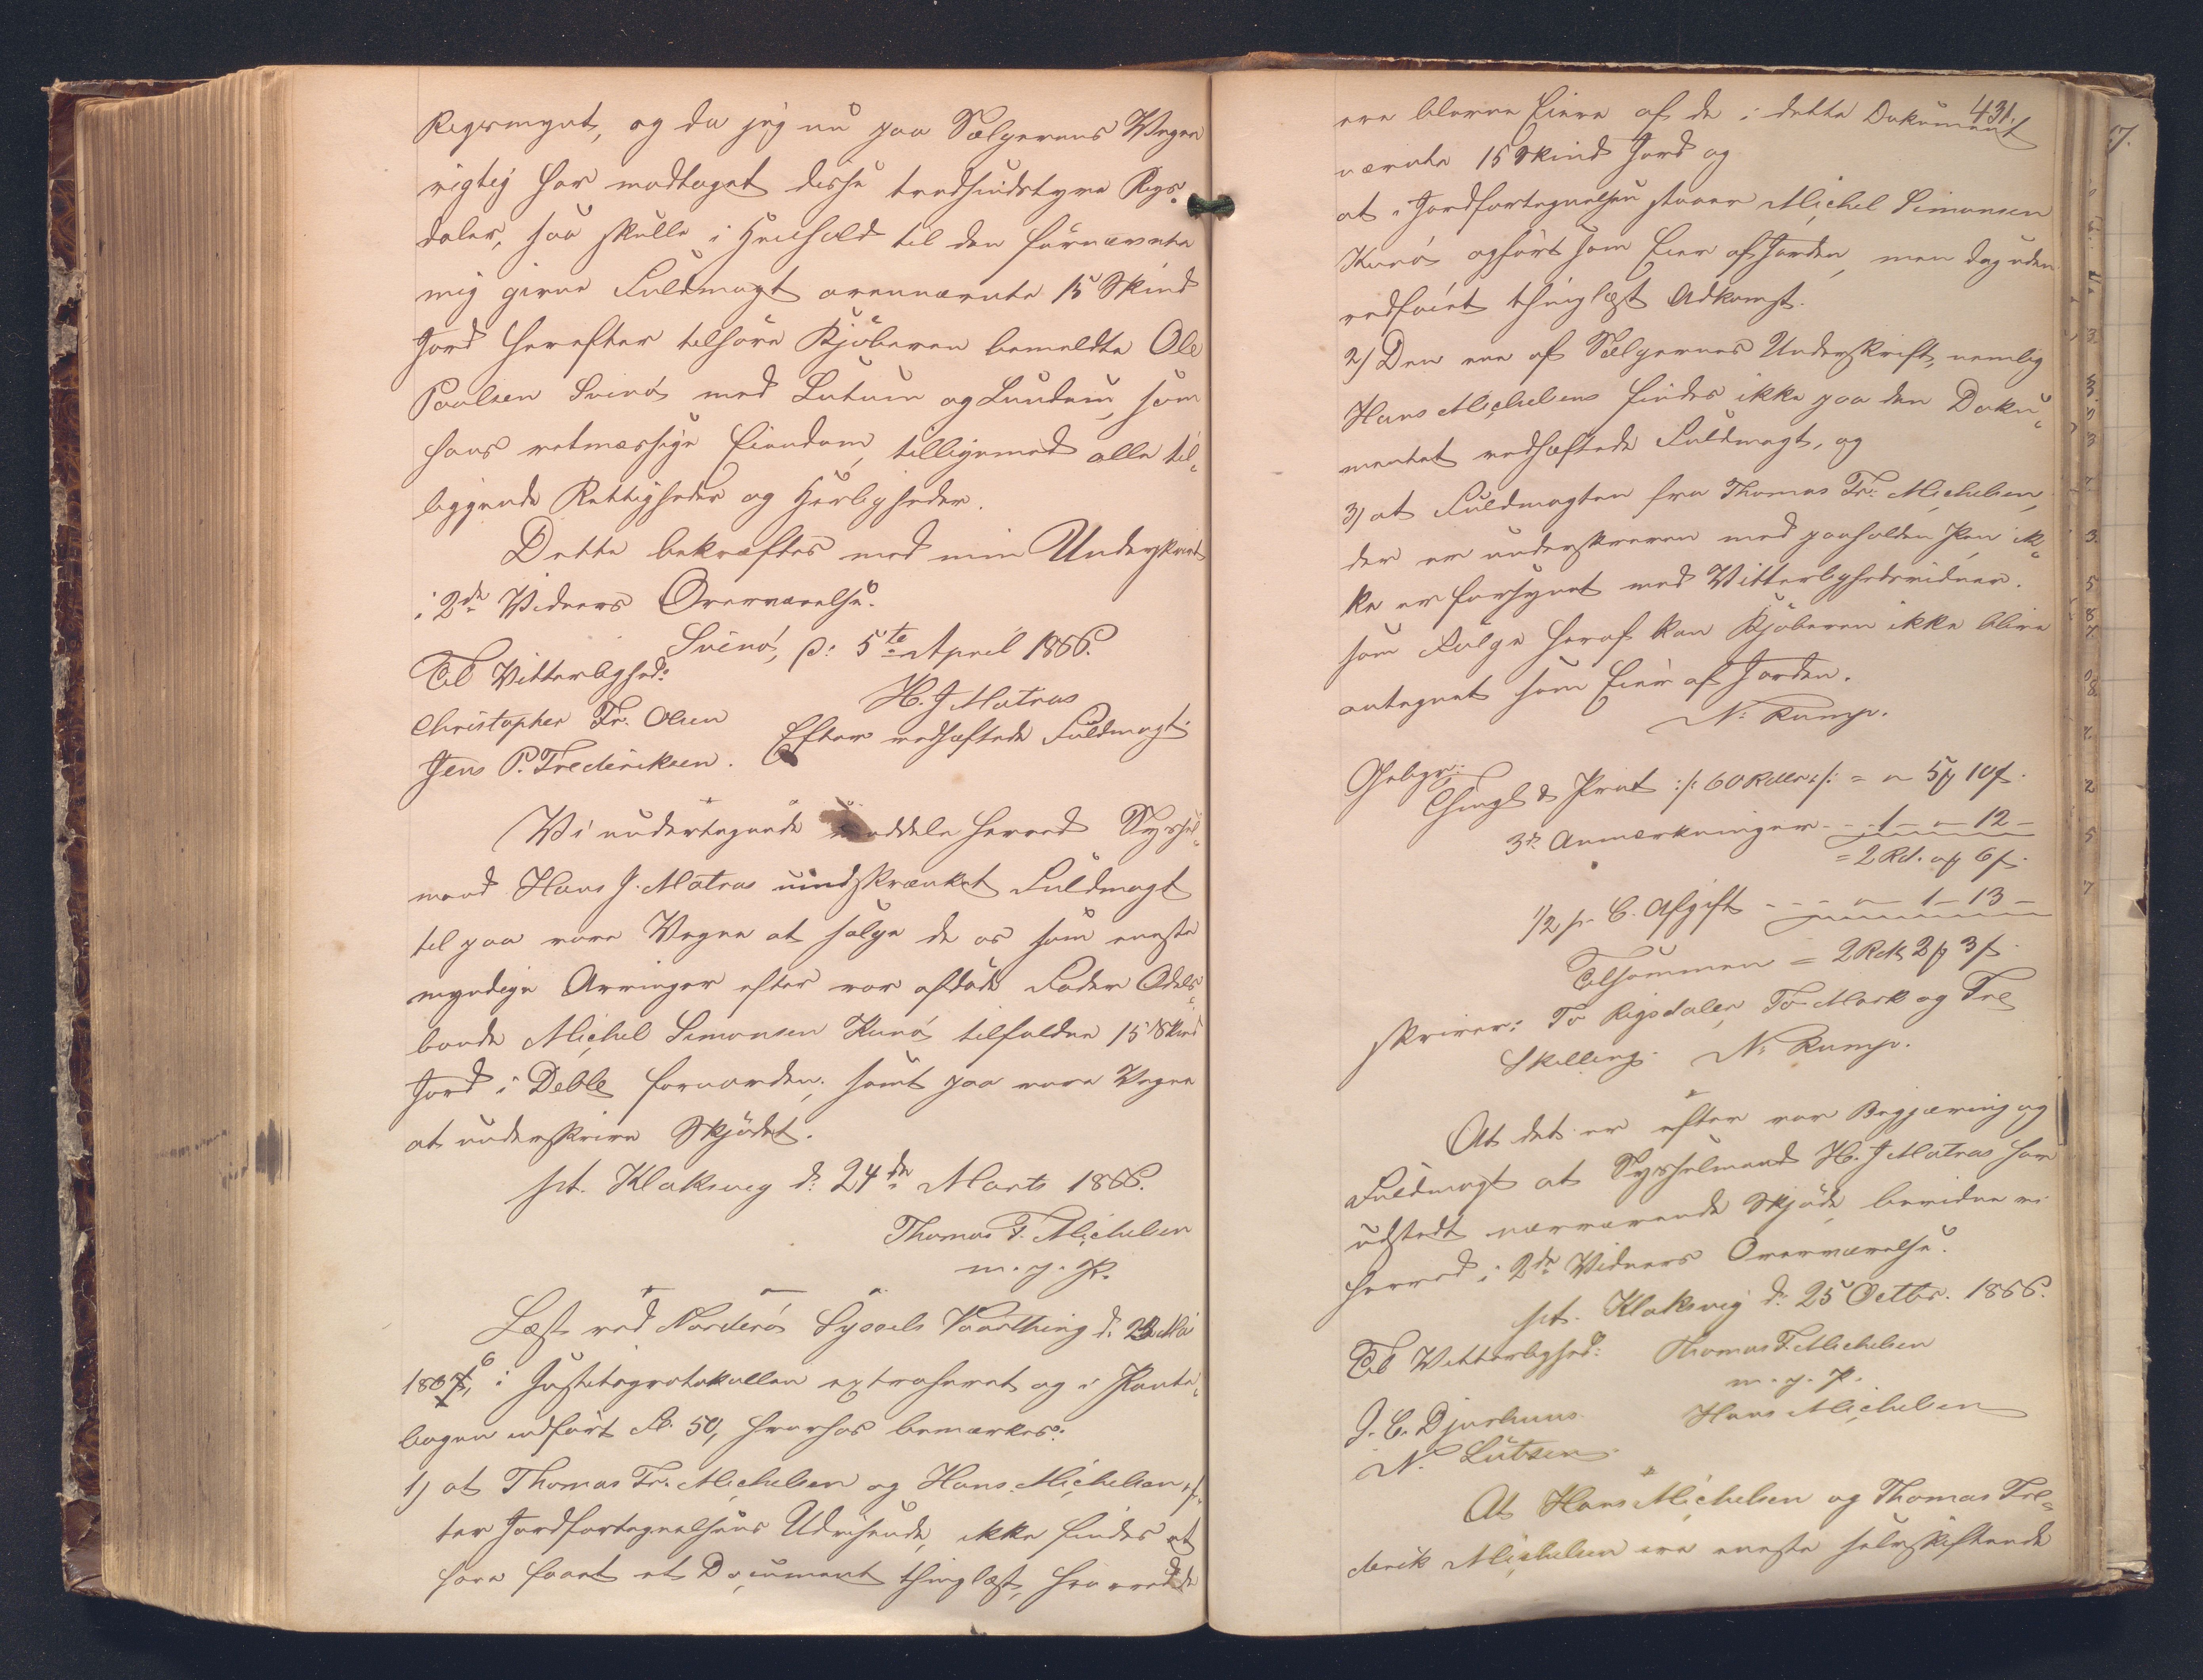 Rigsmynt, og da jeg nu paa Sælgerens Vegne
rigtig har modtaget disse tredsindstyve Rigs-
daler, saa skulle i Henhold til den fornævnte
mig givne Fuldmagt ovennævnte 15 Skind
Jord herefter tilhøre Kjøberen bemeldte Ole
Poulsen Svinø med Lutum og Lundum, som
hans retmæssige Eiendom, tilligemed alle til-
liggende Rettigheder og Herligheder.
Dette bekræftes med min Underskrivt
i 2de Vidners Overværelse.
Svinø, d: 5te April 1866.
Til Vitterlighed:
H. J Matras
Christopher Fr. Olsen
Efter vedhæftede Fuldmagt
Jens P. Frederiksen.
Vi undertegnede meddele herved Syssel-
mand Hans J. Matras uindskrænket Fuldmagt
til paa vore Vegne at sælge de os som eneste
myndige Arvinger efter vor afdøde Fader Odels-
bonde Michel Simonsen Kunø tilfaldne 15 Skind
Jord i Deble fornorden, samt paa vore Vegne
at underskrive Skjødet.
pt. Klaksvig d: 24de Marts 1866.
Thomas F. Michelsen
m. p. P.
Læst ved Norderø Syssels Vaarthing d. 23 Mai
1866, i Justitsprotokollen extraheret og i Pante-
bogen indført No. 50, hvorhos bemærkes:
1) at Thomas Fr. Michelsen og Hans Michelsen ef-
ter Jordfortegnelsens Udvisende, ikke findes at
have faaet et Document thinglæst, hvorved de
431.
ere blevne Eiere af de i dette Dokument
nævnte 15 Skind Jord og
at i Jordfortegnelsen staaer Michel Simonsen
Kunø opført som Eier af Jorden, men dog uden
vedføiet thinglæst Adkomst.
2) Den ene af Sælgernes Underskrift, nemlig
Hans Michelsens findes ikke paa den Doku-
mentet vedhæftede Fuldmagt, og
3) at Fuldmagten fra Thomas Fr. Michelsen,
der er underskreven med paaholden Pen ik-
ke er forsynet med Vitterlighedsvidner.
som Følge heraf kan Kjøberen ikke blive
antegnet som Eier af Jorden.
N: Rump.
Gebyr:
Thingl & Prot :/: 60 Rdlr :/: = " 5 10
3de Anmærkninger - - 1 - " - 12 -
= 2 Rd. " 6
1/2 p. C. Afgift - - - " - 1 - 13 -
Tilsammen = 2 Rdl 2 3
skriver: To Rigsdaler To Mark og Tre
Skilling. N: Rump.
At det er efter vor Begjæring og
Fuldmagt at Sysselmand H. J Matras har
udstedt nærværende Skjøde bevidne vi
herved i 2de Vidners Overværelse.
pt. Klaksvig d: 25 Octbr. 1866.
Til Vitterlighed: Thomas F. Michelsen
m. p. P.
J. C. Djurhuus Hans Michelsen
N. Lutzen
At Hans Michelsen og Thomas Fre-
derik Michelsen ere eneste selvskiftende